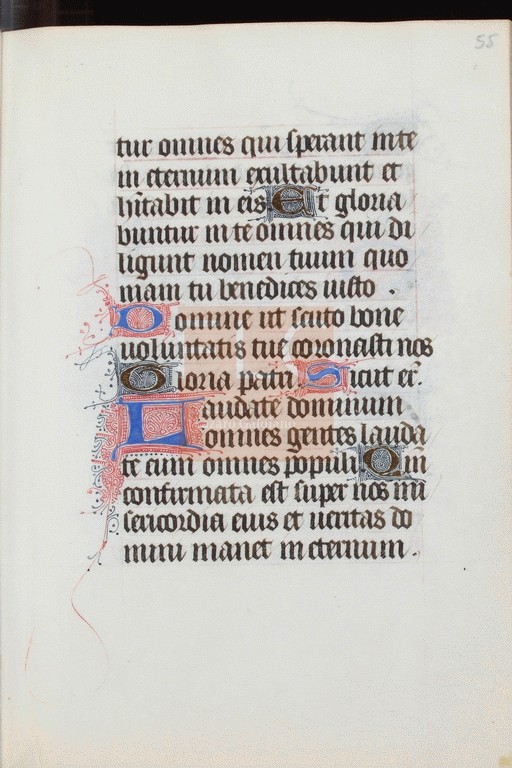 55
tur omnes qui sperant in te
in eternum exultabunt et
hītabit in eis. Et gloria
buntur in te omnes qui di
ligunt nomen tuum quo
niam tu benedices iusto .
Domine ut scuto bone
uoluntatis tue coronasti nos
Gloria patri. Sicut er̄.
Laudate dominum
omnes gentes lauda
te eum omnes populi. Qm̄
confirmata est super nos mi
sericordia eius et ueritas do
mini manet in eternum .